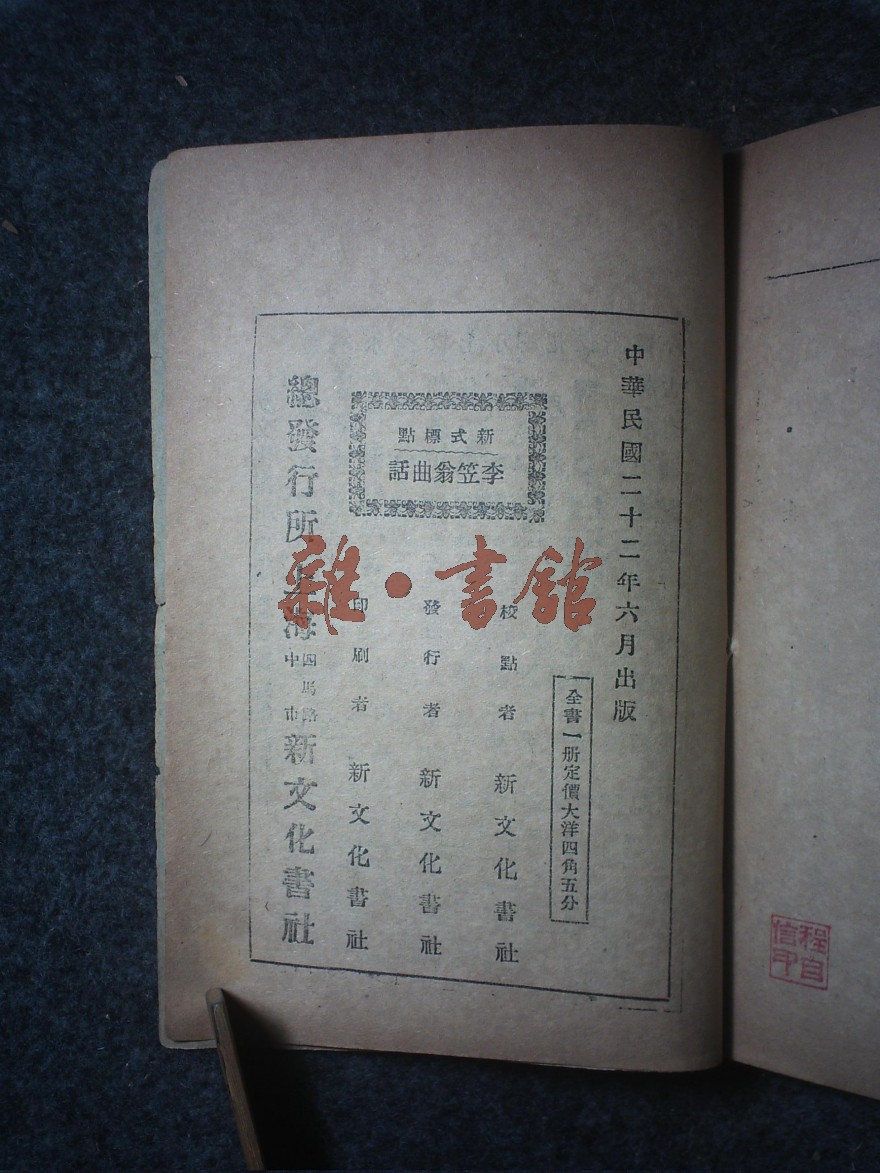 中華民國二十二年六月出版
全書一册定價大洋四角五分
新式標點
李笠翁曲話
校點者 新文化書社
發行者 新文化書社
印刷者 新文化書社
總發行所上海四馬路中市新文化書社
雜·書館
程自信印